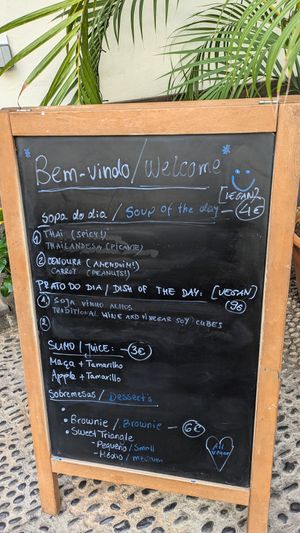 * Bem-vindo/Welcome *
[VEGAN]
Sopa do dia / Soup of the day — 4€
1 THAI (SPICY!)
THAILANDESA (PICANTE)
2 CENOURA (AMENDOIM!)
CARROT (PEANUTS!)
PRATO DO DIA / DISH OF THE DAY: [VEGAN]
9€
1 SOJA VINHO ALHOS
TRADITIONAL WINE AND VINEGAR SOY CUBES
2
SUMO / JUICE: — 3€
Maça + Tamarilho
Apple + Tamarillo
Sobremesas / Dessert's
• Brownie / Brownie — 6€
• Sweet Trianale
- Pequeño / Small
- Médio / Medium
All
vegan